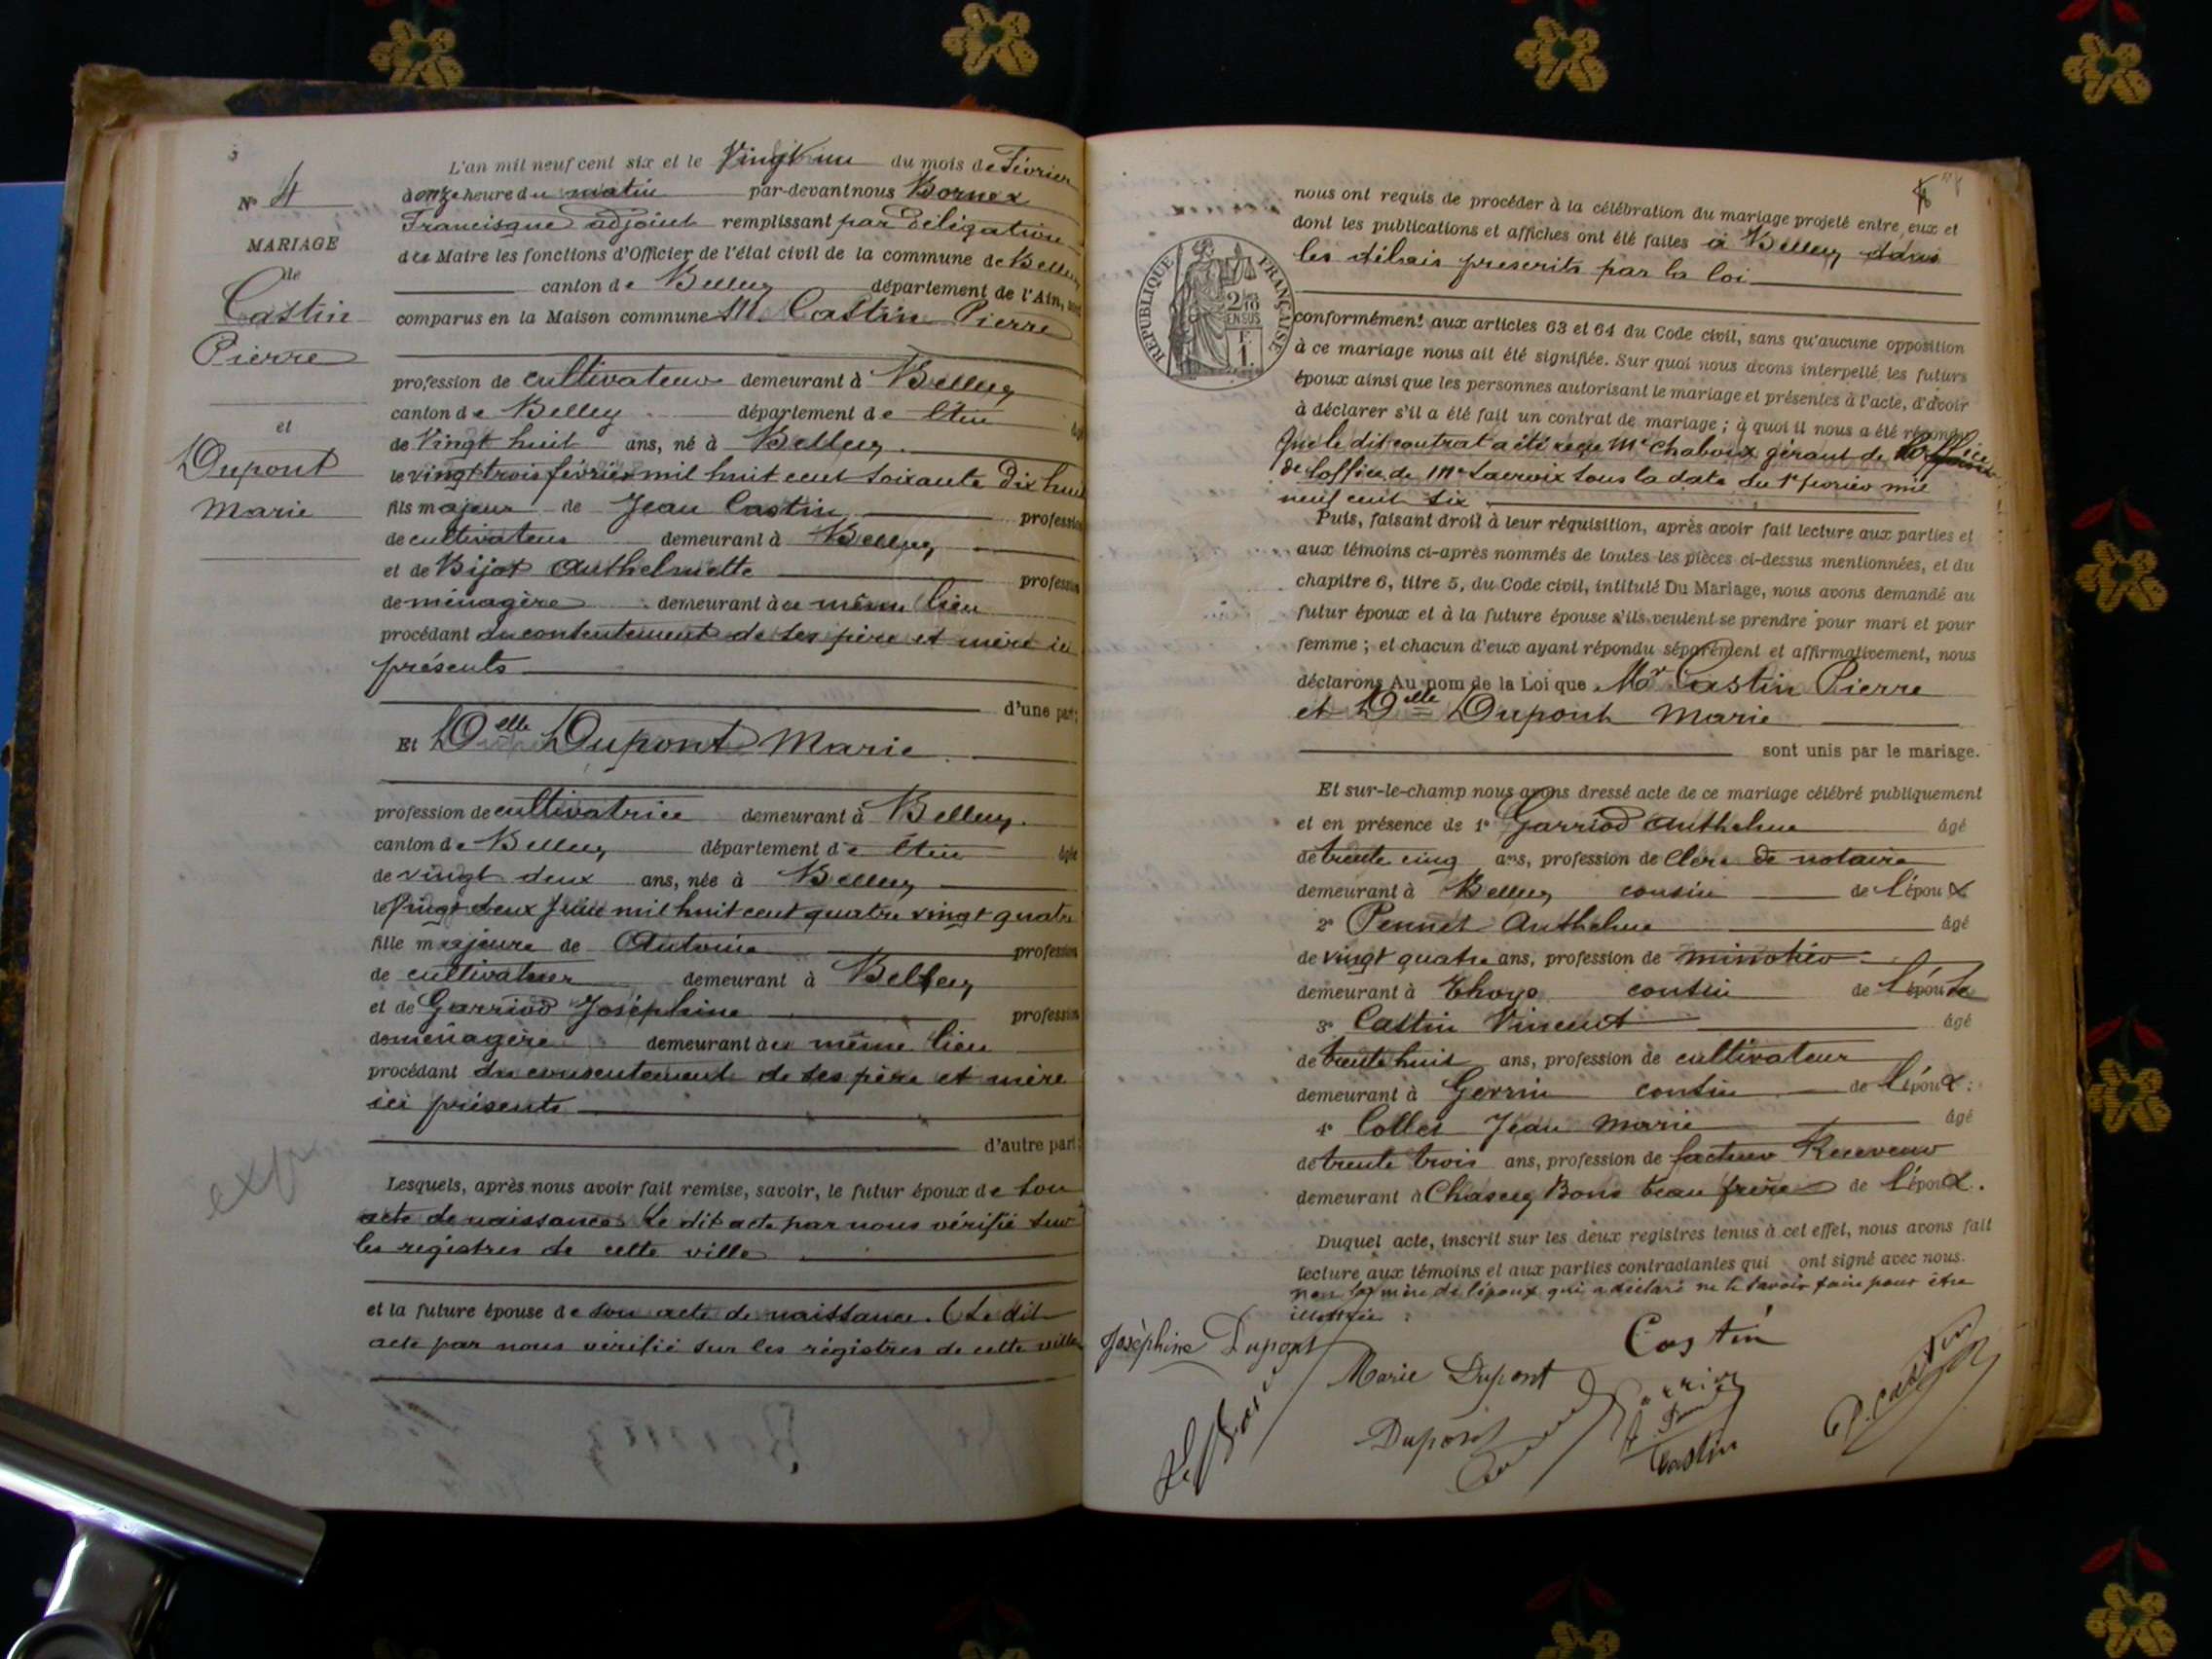 N° 4
MARIAGE
de
Castin
Pierre
et
Dupont
Marie
L'an mil neuf cent six et le Vingt un du mois de Février
à onze heure du matin par-devant nous Bornex
Francisque adjoint remplissant par déligation
du Maire les fonctions d'Officier de l'état civil de la commune de Belley
canton de Belley département de l'Ain, sont
comparus en la Maison commune M. Castin Pierre
profession de cultivateur demeurant à Belley
canton de Belley département de l'Ain âgé
de Vingt huit ans, né à Belley
le vingt trois février mil huit cent soixante dix huit
fils majeur de Jean Castin profession
de cultivateur demeurant à Belley
et de Bijot Anthelmette profession
de ménagère demeurant à ce même lieu
procédant du consentement de ses père et mère ici
présents
d'une part;
Et Delle Dupont Marie
profession de cultivatrice demeurant à Belley
canton de Belley département de l'Ain âgée
de vingt deux ans, née à Belley
le Vingt deux Juin mil huit cent quatre vingt quatre
fille majeure de Antoine profession
de cultivateur demeurant à Belley
et de Garriod Joséphine profession
de ménagère demeurant à ce même lieu
procédant du consentement de ses père et mère
ici présents
d'autre part;
exp
Lesquels, après nous avoir fait remise, savoir, le futur époux de son
acte de naissance. Le dit acte par nous vérifié sur
les régistres de cette ville
et la future épouse de son acte de naissance. (Le dit
acte par nous vérifié sur les régistres de cette ville
nous ont requis de procéder à la célébration du mariage projeté entre eux et
dont les publications et affiches ont été faites à Belley dans
les délais prescrits par la loi
REPUBLIQUE FRANÇAISE
2/10
EN SUS
F.
1.
conformément aux articles 63 et 64 du Code civil, sans qu'aucune opposition
à ce mariage nous ait été signifiée. Sur quoi nous avons interpellé les futurs
époux ainsi que les personnes autorisant le mariage et présentes à l'acte, d'avoir
à déclarer s'il a été fait un contrat de mariage ; à quoi il nous a été répondu
Que le dit contrat a été reçu Me Chaboux gérant de
de l'office de Me Lacroix sous la date du 1er février mil
neuf cent six
Puis, faisant droit à leur réquisition, après avoir fait lecture aux parties et
aux témoins ci-après nommés de toutes les pièces ci-dessus mentionnées, et du
chapitre 6, titre 5, du Code civil, intitulé Du Mariage, nous avons demandé au
futur époux et à la future épouse s'ils veulent se prendre pour mari et pour
femme ; et chacun d'eux ayant répondu séparément et affirmativement, nous
déclarons Au nom de la Loi que Mr Castin Pierre
et Delle Dupont Marie
sont unis par le mariage.
Et sur-le-champ nous avons dressé acte de ce mariage célébré publiquement
et en présence de 1° Garriod Anthelme âgé
de trente cinq ans, profession de Clerc de notaire
demeurant à Belley cousin de l'époux
2° Pennet Anthelme âgé
de vingt quatre ans, profession de minotier
demeurant à Thoys cousin de l'épouse
3° Castin Vincent âgé
de trente huit ans, profession de cultivateur
demeurant à Gerrin cousin de l'époux
4° Collet Jean Marie âgé
de trente trois ans, profession de facteur Receveur
demeurant à Chasey Bons beau frère de l'époux.
Duquel acte, inscrit sur les deux registres tenus à cet effet, nous avons fait
lecture aux témoins et aux parties contractantes qui ont signé avec nous.
non la mère de l'époux qui a déclaré ne le savoir faire pour être
illettrée
Joséphine Dupont
Marie Dupont
Castin
Dupont
Castin
P. Castin